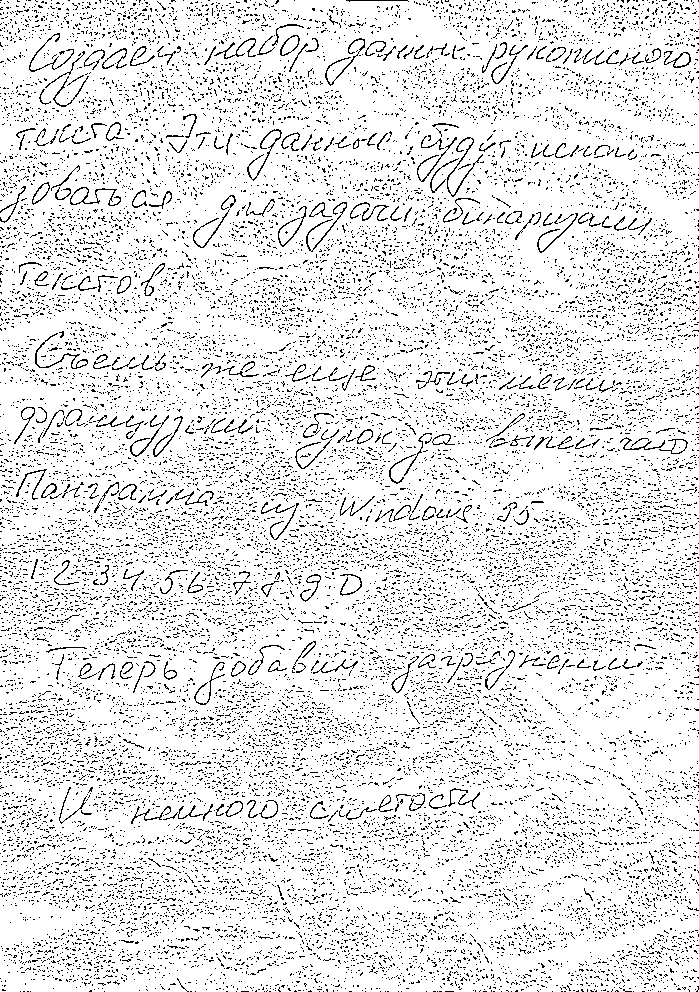 Создаем набор данных рукописного
текста. Эти данные будут исполь-
зоваться для задачи бинаризации
текстов
Съешь же еще этих мягких
французских булок, да выпей чаю
Панграмма из Windows 95
1 2 3 4 5 6 7 8 9 0
Теперь добавим загрязнений
И немного смятости